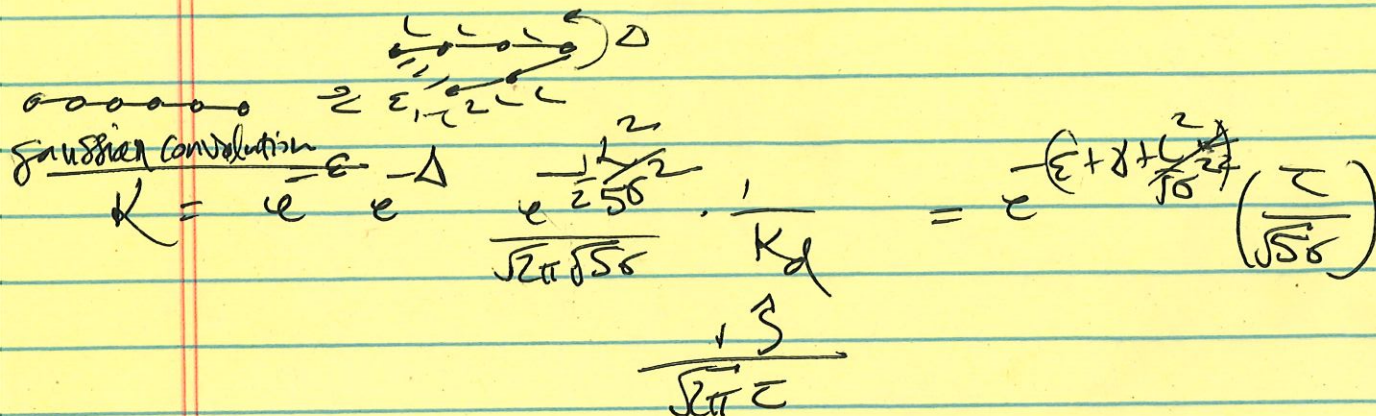 L L L Δ
⇌ ε, τ² L L
gaussian convolution
K = e^{-ε} e^{-Δ} \frac{e^{-\frac{1}{2}\frac{L^2}{5σ^2}}}{\sqrt{2π}\sqrt{5}σ} · \frac{1}{K_d} = e^{-(ε+γ+\frac{L^2}{\sqrt{5}σ^2})} (\frac{τ}{\sqrt{5}σ})
\sqrt{2π} τ